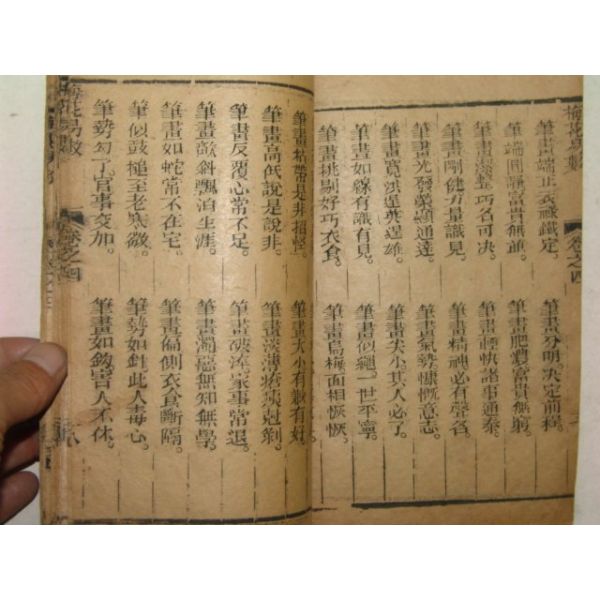 梅花易數
卷之四
筆畫端正衣祿鐵定。筆畫分明决定前程。
筆端圓靜富貴無並。筆畫肥濃富貴無窮。
筆畫潔整巧名可决。筆畫輕快諸事通泰。
筆畫剛健力量識見。筆畫精神必有聲名。
筆畫光發榮顯通達。筆畫氣勢慷慨意志。
筆畫寬洪逞英逞雄。筆畫尖小其人必了。
筆畫如線有識有見。筆畫似繩一世平寧。
筆畫挑剔好巧衣食。筆畫烏梅面相恢恢。
筆畫枯帶是非招怪。筆畫大小有歉有好。
筆畫高低說是說非。筆畫淡薄瘡痍尅剝。
筆畫反覆心常不足。筆畫破碎家事常退。
筆畫欹斜飄泊生涯。筆畫濁惡無知無學。
筆畫如蛇常不在宅。筆畫偏側衣食斷隔。
筆似鼓槌至老寒微。筆勢如針此人毒心。
筆勢勾了官事交加。筆畫如鉤害人不休。
梅花易數
卷之四